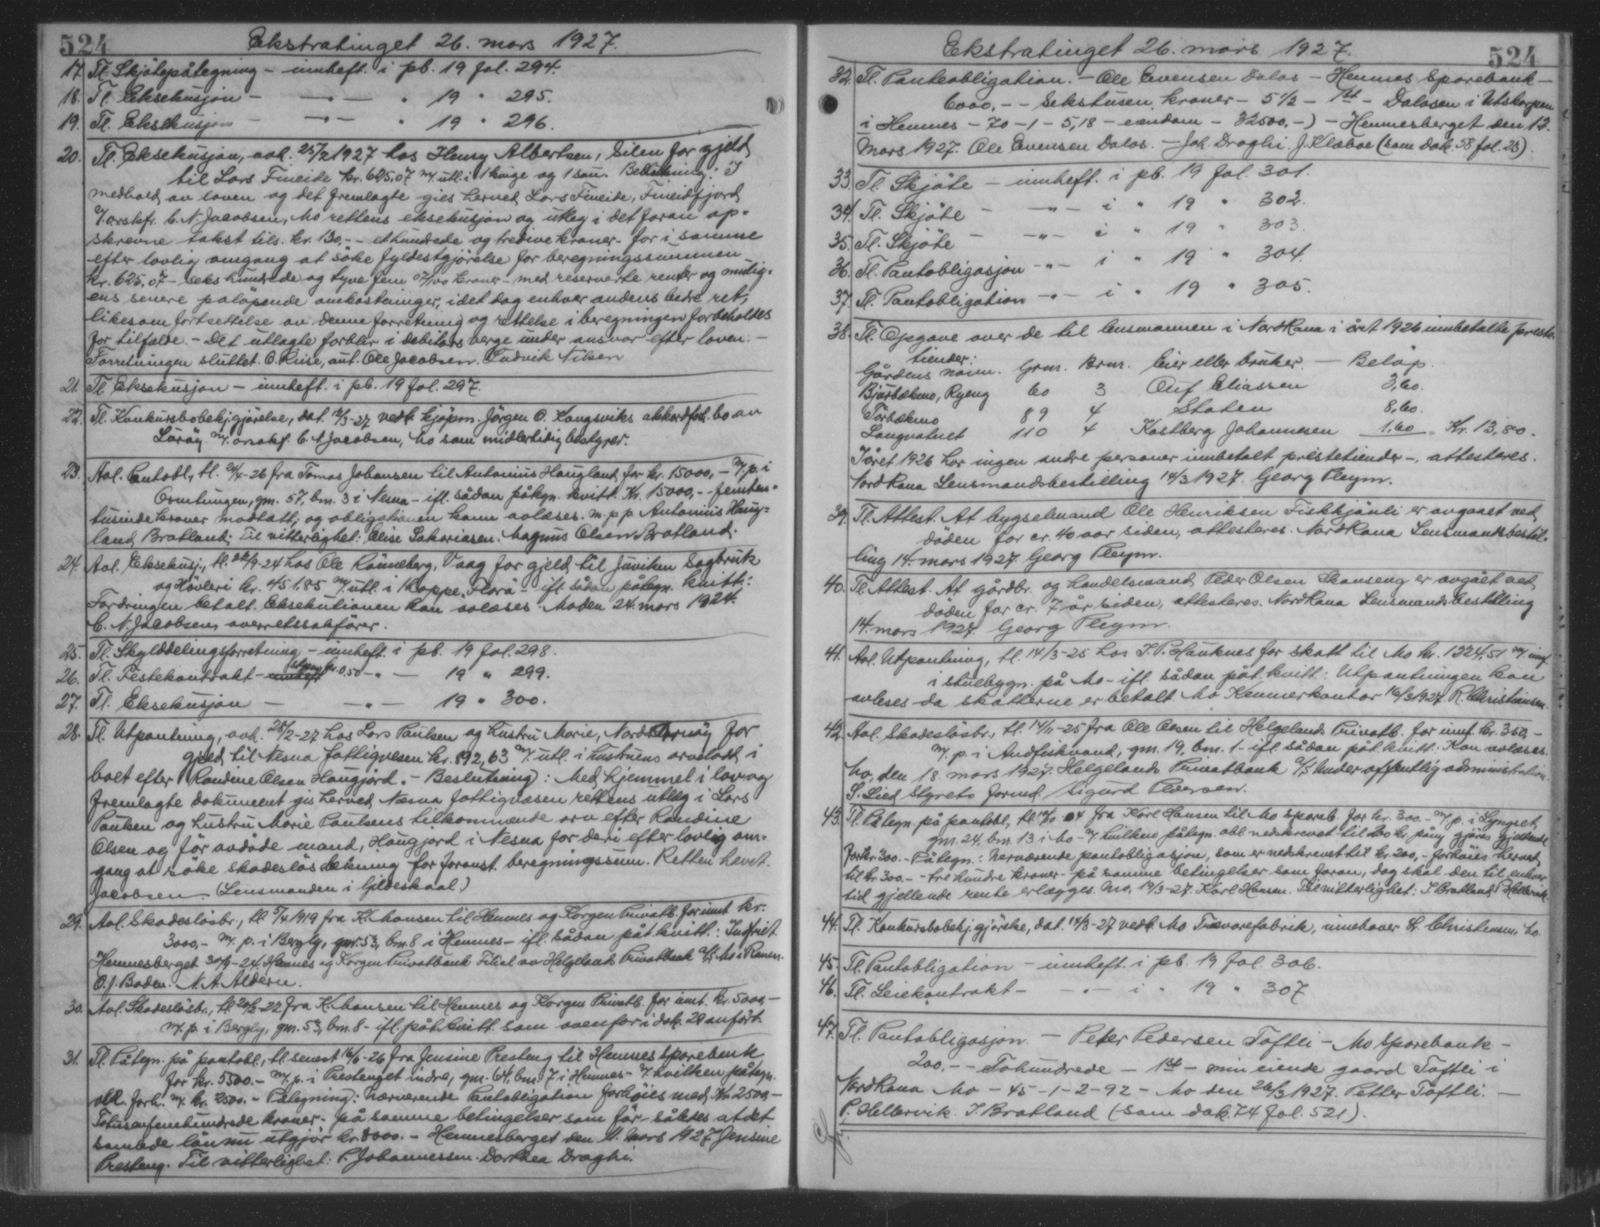 524
Ekstratinget 26. mars 1927.
17. Tl. Skjøtepåtegning - innheft. i pb. 19 fol. 294.
18. Tl. Eksekusjon - -"- " 19 " 295.
19. Tl. Eksekusjon - -"- " 19 " 296.
20. Tl. Eksekusjon, avh. 25/2 1927 hos Henry Albertsen, Silen for gjeld
til Lars Fineide kr. 625,07 m/ utl. i 1 hinge og 1 sau. Beslutning: I
medhold av loven og det fremlagte gies herved Lars Fineide, Fineidfjord
v/ orskfr. C. N. Jacobsen, Mo rettens eksekusjon og utleg i det foran op-
skrevne takst tils. kr. 130,- - ethundrede og tredive kroner - for i samme
efter lovlig omgang at søke fyldestgjørelse for beregningssummen
kr. 625,07 - seks hundrede og tyve fem 07/100 kroner - med reserverte renter og mulig-
ens senere påløpende omkostninger, idet dog enhver andens bedre ret,
likesom fortsettelse av denne forretning og rettelse i beregningen forbeholdes
for tilfølde. - Det utlagte forblir i debitors verge under ansvar efter loven. -
Forretningen sluttet. O. Riise, aut. Ole Jacobsen. Ludvik Nilsen
21. Tl. Eksekusjon - innheft. i pb. 19 fol. 297.
22. Tl. Konkursbobekjgjørelse, dat. 12/3-27 vedk kjøpm. Jörgen O. Kangsviks akkordfor. bo av
Lörøy m/ orsakf. C. N Jacobsen, Mo som midlertidig bestyrer.
23. Avl. Pantobl., tl. -26 fra Tomas Johansen til Antonius Haugland for kr. 15000,- m/ p. i
Ormtingen, gm. 57, bm. 3 i Nesna - ifl. sådan påtegn. kvitt. Kr. 15000,- - femten-
tusinde kroner modtatt, og obligationen kann avlæses. m.p.p Antonius Haug-
land, Bratland. Til vitterlighet: Elise Zakariasen. Magnus Olsen Bratland.
24. Avl. Eksekusj., tl. 24/9-24 hos Ole Rönneberg, Vaag for gjeld til Juviken Sagbruk
og Høvleri kr. 451,85 m/ utl. i 1 koppe, Florö - ifl. sådan påtegn. kvitt:
Fordringen betalt. Eksekutionen kan avlæses. Moden 24. mars 1924.
C. N. Jacobsen, overretssakfører.
25. Tl. Skylddelingsforretning - innheft. i pb. 19 fol. 298.
26. Tl. Festekontrakt - 0,50 -"- 19 " 299.
27. Tl. Eksekusjon - -"- 19 " 300.
28. Tl. Utpantning, avh. 25/2-27 hos Lars Paulsen og hustru Marie, Nord for
gjeld til Nesna fattigvesen kr. 892,63 m/ utl. i hustruens arvelodd i
boet efter Randine Olsen Haugjord. - Beslutning: Med hjemmel i lov og
fremlagte dokument gis herved Nesna fattigvæsen rettens utleg i Lars
Paulsen og hustru Marie Paulsens tilkommende arv efter Randine
Olsen og før avdøde mand, Haugjord i Nesna for deri efter lovlig om-
gang at søke skadesløs dekning for foranst. beregningssum. Retten hevet.
Jacobsen (Lensmanden i Gildeskaal)
29. Avl. Skadesløsbr., tl. 1919 fra K. Monsen til Hemnes og Korgen Privatb. for innt kr.
3000,- m/ p. i Bergly, gm. 53, bm. 8 i Hemnes - ifl. sådan påt. kvitt: Indfriet.
Hemnesberget 30/9-24. Hemnes og Korgen Privatbank Filial av Helgelands Privatbank A/S Mo i Ranen.
O. J. Boden. N. A. Aldern.
30. Avl. Skadesløsbr., tl. 20/2-22 fra K. Monsen til Hemnes og Korgen Privatb. for innt. kr. 5000,-
m/ p. i Bergly, gm. 53, bm. 8 - ifl. påt. kvitt. som ovenfor i dok. 29 anført.
31. Tl. Påtegn. på pantobl., tl. senest -26 fra Jensine Presteng til Hemnes Sparebank
for kr. 5500.- m/ p. i Prestenget indre, gm. 64, bm. 7 i Hemnes - v/ hvilken påtegn.
obl. forh. m/ kr. 2500.- Påtegning: Nærværende Pantobligation forhøies med kr 2500,-
Totusenfemhundrede kroner - på samme betingelser som før således at det
samlede lån nu utgjør kr. 8000.- Hemnesberget den 11. mars 1927 Jensine
Presteng. Til vitterlighet: P. Johannessen. Dorthea Draghi.
524
Ekstratinget 26. mars 1927.
32. Tl. Panteobligation. - Ole Evensen Dalos - Hemnes Sparebank -
6000,- - Sekstusen kroner - 5 1/2 - 1ste - Dalosen i Utskarpen
i Hemnes - 70 - 1 - 5,18 - eiendom - 32500,-) - Hemnesberget den 12.
mars 1927. Ole Evensen Dalos. - Joh. Draghi J. Klæboe (sam dok. 38 fol. 23).
33. Tl. Skjøte - innheft. i pb. 19 fol. 301.
34. Tl. Skjøte - -"- i " 19 " 302.
35. Tl. Skjøte - -"- i " 19 " 303.
36. Tl. Pantobligasjon -"- i " 19 " 304.
37. Tl. Pantobligation -"- i " 19 " 305.
38. Tl. Opgave over de til lensmannen i Nord Rana i året 1926 innbetalte preste-
tiender:
Gårdens navn. Grnr. Brnr. Eier eller bruker. - Beløp.
Bjurbækmo, Ryeng 60 3 Oluf Eliassen 3,60.
Torsækmo 89 4 Staten 8,60.
Langvatnet 110 4 Kastberg Johannesen 1,60 Kr. 13,80.
I året 1926 har ingen andre personer innbetalt prestetiender -, attesteres.
Nord Rana Lensmandsbestilling 14/3 1927. Georg Pleym.
39. Tl. Attest. At bygselmand Ole Henriksen Fiskkjønli er avgaaet ved
døden for cr. 40 aar siden, attesteres. Nord Rana Lensmandsbestil-
ling 14. mars 1927. Georg Pleym.
40. Tl. Attest. At gårdbr. og handelsmand Peder Olsen Skonseng er avgået ved
døden for cr. 7 år siden, attesteres. Nord Rana Lensmandsbestilling
14. mars 1927. Georg Pleym.
41. Avl. Utpantning, tl. 14/3-25 hos I. P. Hauknes for skatt til Mo kr. 1224,51 m/ utl
i stuebygn. på Mo - ifl. sådan påt. kvitt: Utpantningen kan
avleses da skatterne er betalt Mo Kemnerkontor 16/3 1927 R. Christiansen.
42. Avl. Skadesløsbr., tl. 14/11-25 fra Ole Olsen til Helgelands Privatb. for innt kr. 350,-
m/ p. i Andfiskvand, gm. 19, bm. 1 - ifl. sådan påt. kvitt: Kan avleses.
Mo, den 18. mars 1927. Helgelands Privatbank A/S Under offentlig administration.
S. Lied styrets formd. Sigurd Pedersen.
43. Tl. Påtegn. på pantobl., tl. 04 fra Karl Hansen til Mo Spareb. for kr. 300.- m/ p. i Lyngset,
gm. 24. bm. 13 i Mo - v/ hvilken påtegn. obl. nedskrevet til 200 kr. påny gjøres gjeldende
for kr. 300.- Påtegn: Nærværende pantobligasjon, som er nedskrevet til kr. 200,- forhøies herved
til kr. 300.- - tre hundre kroner på samme betingelser som foran, dog skal den til enhver
tid gjellende rente erlegges. Mo, 14/3-27. Karl Hansen. Til vitterlighet: I. Bratland. P. Hellervik.
44. Tl. Konkursbobekj.gjørelse, dat. 14/3-27 vedk. Mo Trævarefabrik, innehaver H. Christensen, Mo.
45. Tl. Pantobligation - innheft. i pb. 19 fol. 306.
46. Tl. Leiekontrakt - -"- i " 19 " 307
47. Tl. Pantobligasjon - Peter Pedersen Toftli - Mo Sparebank -
200,- - Tohundrede - 1ste - min eiende gaard Toftli i
Nord Rana Mo - 45 - 1 - 2 - 92 - Mo den 24/3 1927. Petter Toftli. -
P. Hellervik. I. Bratland (sam dok. 74 fol. 521).